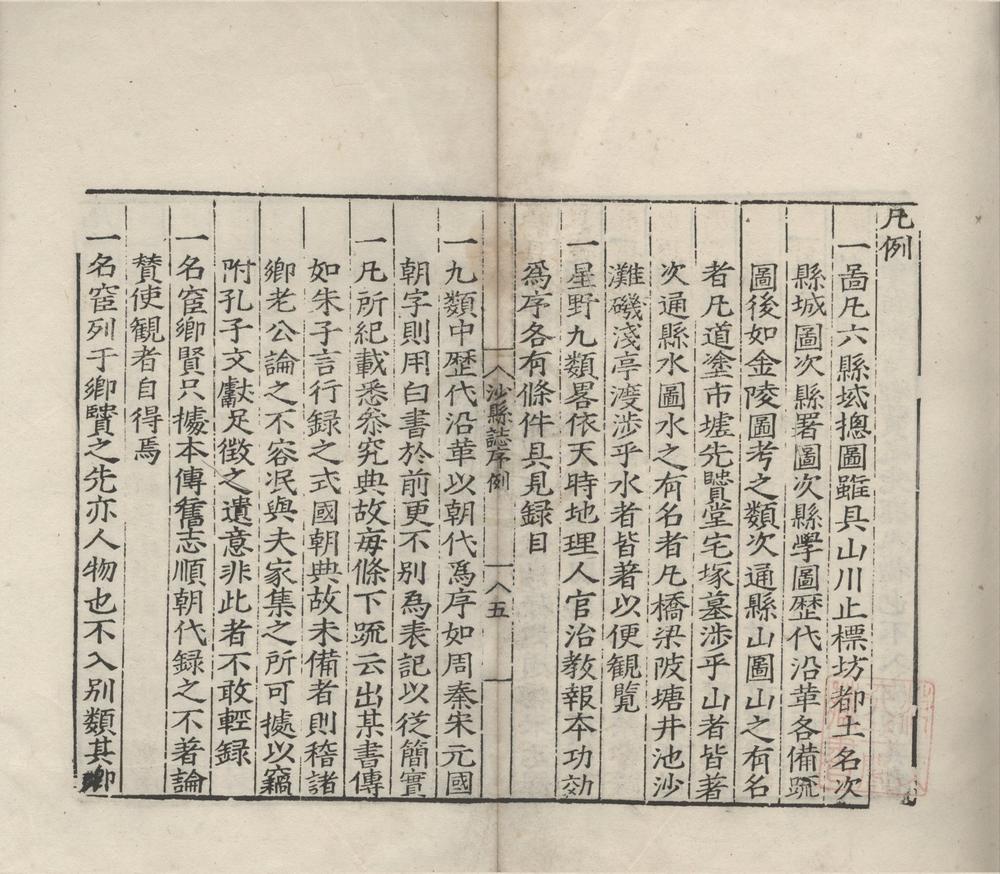 凡例
一啚凡六縣域摠圖雖具山川止標坊都土名次
縣城圖次縣署圖次縣學圖歷代沿革各備䟽
圖後如金陵圖考之類次通縣山圖山之有名
者凡道塗市墟先賢堂宅塚墓涉乎山者皆著
次通縣水圖水之有名者凡橋梁陂塘井池沙
灘磯淺亭渡涉乎水者皆著以便觀覽
一星野九類畧依天時地理人官治教報本功効
爲序各有條件具見録目
沙縣誌序例
五
一九類中歷代沿革以朝代爲序如周秦宋元國
朝字則用白書於前更不别爲表記以從簡實
一凡所紀載悉叅究典故每條下䟽云出某書傳
如朱子言行録之式國朝典故未備者則稽諸
鄉老公論之不容泯與夫家集之所可據以竊
附孔子文獻足徵之遺意非此者不敢輕録
一名宦鄉賢只據本傳舊志順朝代録之不著論
贊使觀者自得焉
一名宦列于鄉賢之先亦人物也不入别類其鄉